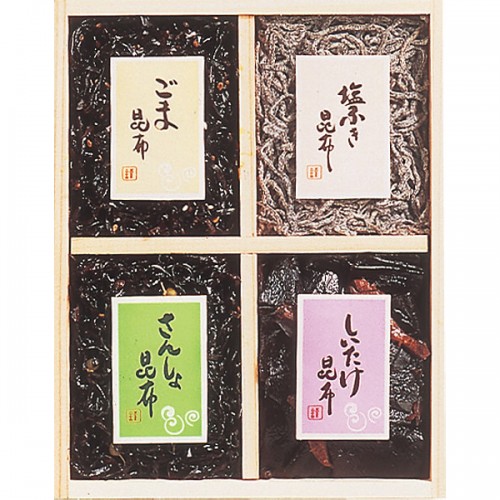 ごま
昆布
塩ふき
昆布
さんしょ
昆布
しいたけ
昆布